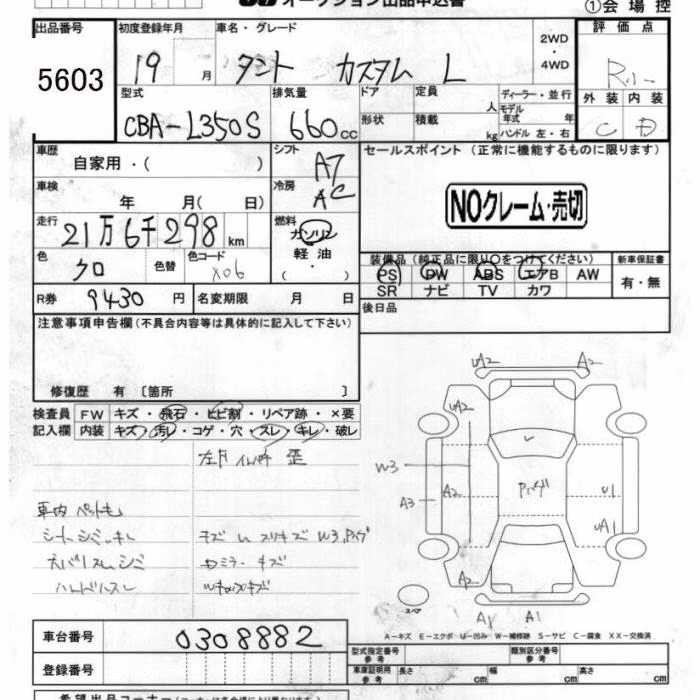 オークション出品申込書
①会場控
出品番号 5603
初度登録年月 19 月
車名・グレード タント カスタム L
2WD
4WD
評価点
外装 内装
C D
型式 CBA-L350S
排気量 660cc
ドア 定員 人
形状 積載 kg
ディーラー・並行
モデル年式 年
ハンドル 左・右
車歴 自家用・( )
シフト A7
セールスポイント(正常に機能するものに限ります)
NOクレーム・売切
車検 年 月( 日)
冷房 AC
走行 21万6千298km
燃料 ガソリン
軽油
・( )
色 クロ 色替 色コード X06
装備品(純正品に限り○をつけてください) 新車保証書
PS PW ABS エアB AW 有・無
SR ナビ TV カワ
R券 9430円 名変期限 月 日
後日品
注意事項申告欄(不具合内容等は具体的に記入して下さい)
修復歴 有〔箇所 〕
検査員 FW キズ・飛石・ヒビ割・リペア跡・×要
記入欄 内装 キズ・汚レ・コゲ・穴・スレ・キレ・破レ
UA2 A2
UA2
W3 A3 A2 U1
UA1
A2
A1 A1
スペア
車内
ハンドルスレ
キズ W3
A-キズ E-エクボ U-凹み W-補修跡 S-サビ C-腐食 XX-交換済
車台番号 0308882
型式指定番号 参考 類別区分番号 参考
登録番号
車庫証明用 参考 長さ cm 幅 cm 高さ cm
希望出品コーナー